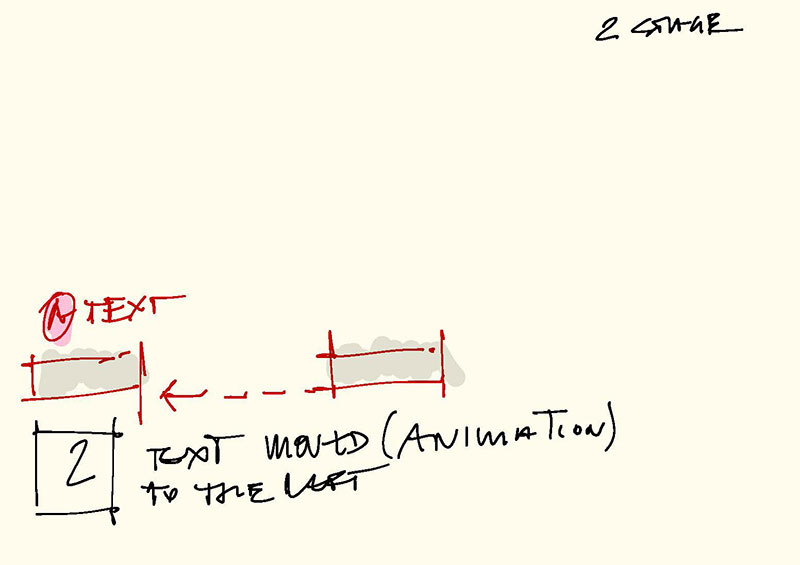 2 STAGE
A TEXT
2 TEXT MOVED (ANIMATION)
TO THE LEFT